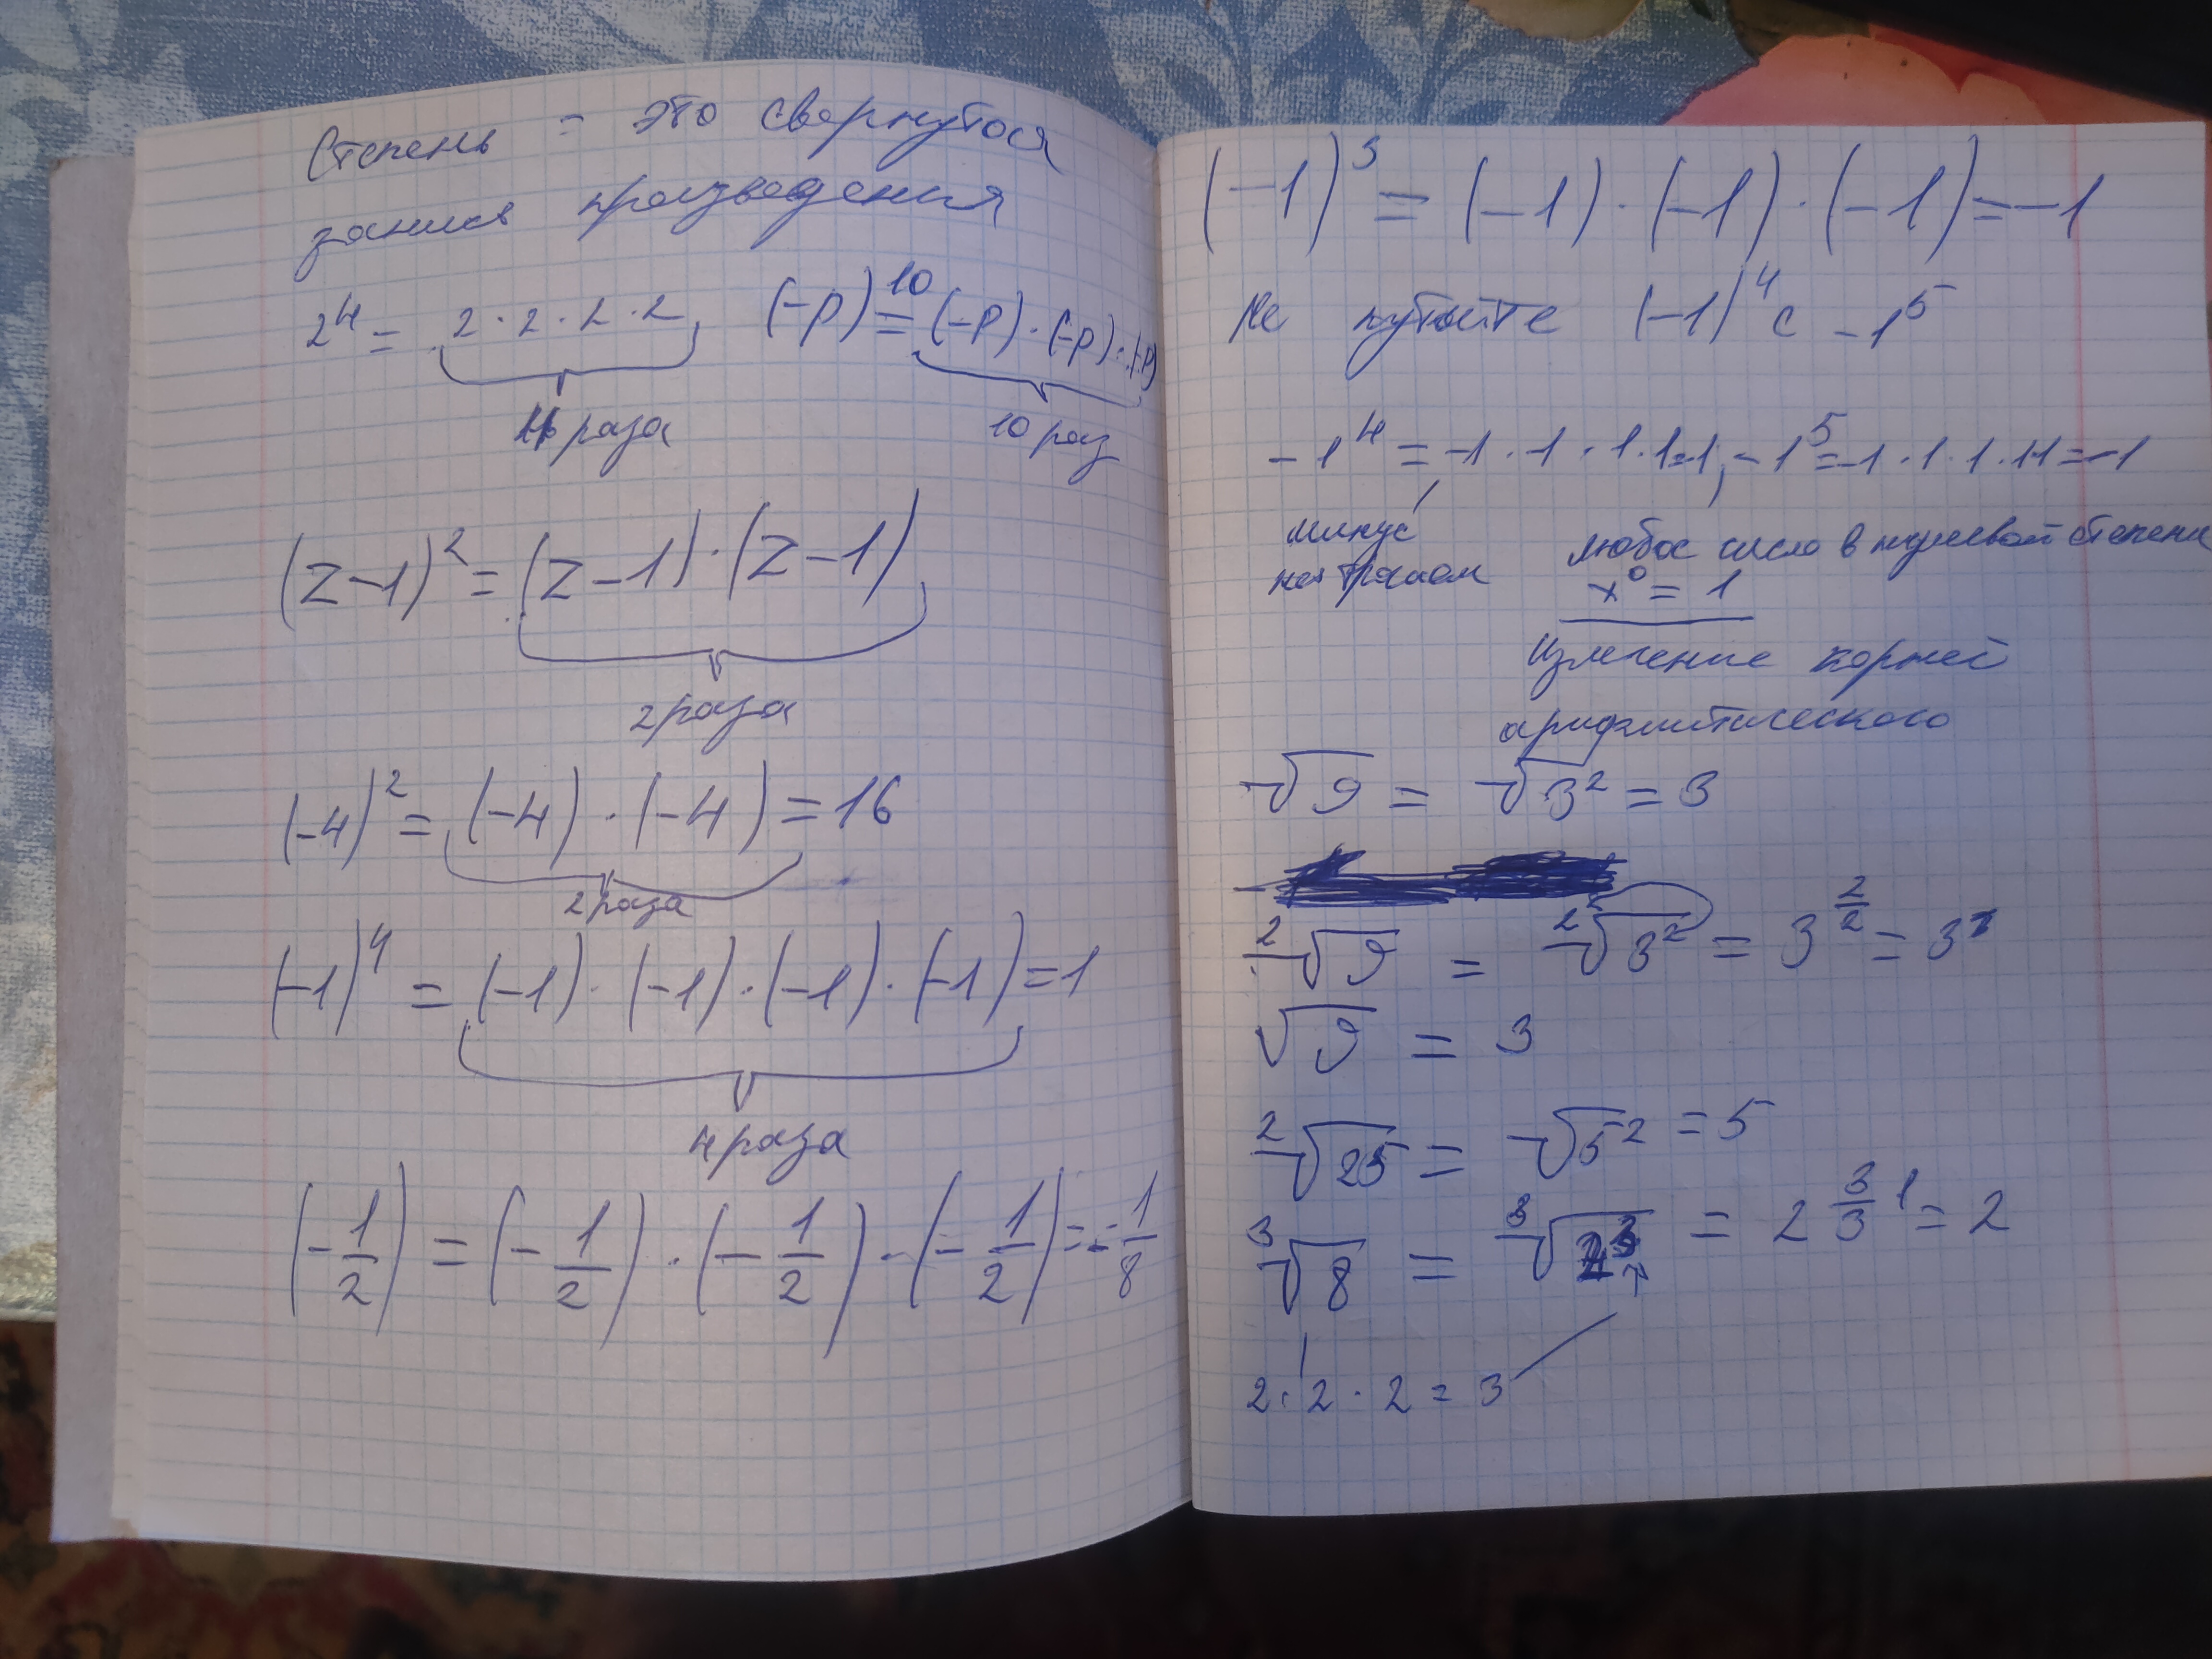 Степень = это свернутая
запись произведения
2⁴ = 2 · 2 · 2 · 2 (-p)¹⁰ = (-p) · (-p) · (-p)
4 раза 10 раз
(z-1)² = (z-1) · (z-1)
2 раза
(-4)² = (-4) · (-4) = 16
2 раза
(-1)⁴ = (-1) · (-1) · (-1) · (-1) = 1
4 раза
(-1/2) = (-1/2) · (-1/2) · (-1/2) = -1/8
(-1)³ = (-1) · (-1) · (-1) = -1
Не путайте (-1)⁴ с -1⁵
-1⁴ = -1 · -1 · 1 · 1 = -1, -1⁵ = -1 · 1 · 1 · 1 · 1 = -1
минус любое число в нулевой степени
не трогаем x⁰ = 1
Излечение корней
арифмитического
√9 = √3² = 3
²√9 = ²√3² = 3^(2/2) = 3¹
√9 = 3
²√25 = √5² = 5
³√8 = ³√2³ = 2^(3/3) 1 = 2
2 · 2 · 2 = 3